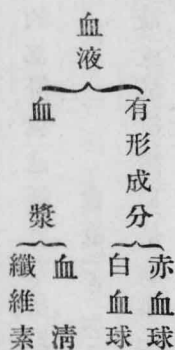 血液
有形成分
赤血球
白血球
血漿
血清
纖維素